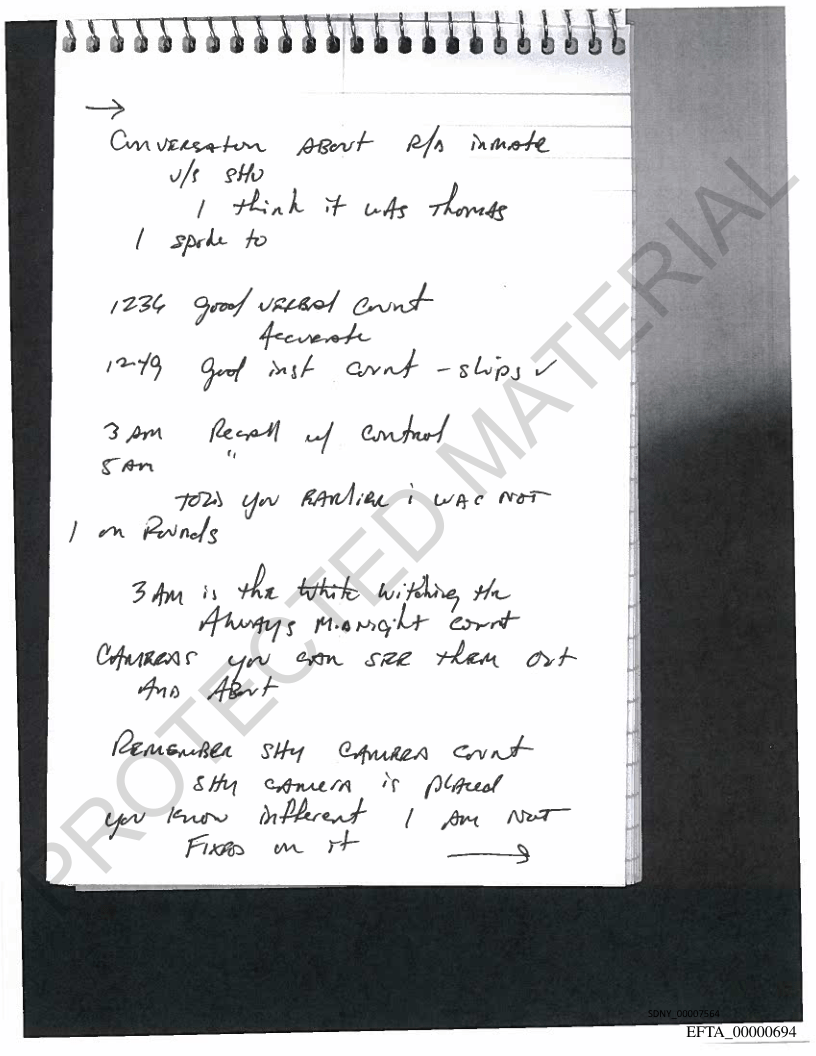 →
Conversation ABout R/A inmate
v/s SHU
I think it wAs Thomas
I spoke to
1236 good verbal count
Accurate
1249 good inst count - slips ✓
3 Am Recall w/ control
5 Am "
TOLD you EARlier i WAS NOT
on Rounds
3 Am is the White Witching Hr
Always Midnight count
CAMERAS you can see them out
And About
REMEMBER SHU CAMERA count
SHU camera is placed
you know different I Am Not
Fixed on it →
PROTECTED MATERIAL
SDNY_00007564
EFTA_00000694